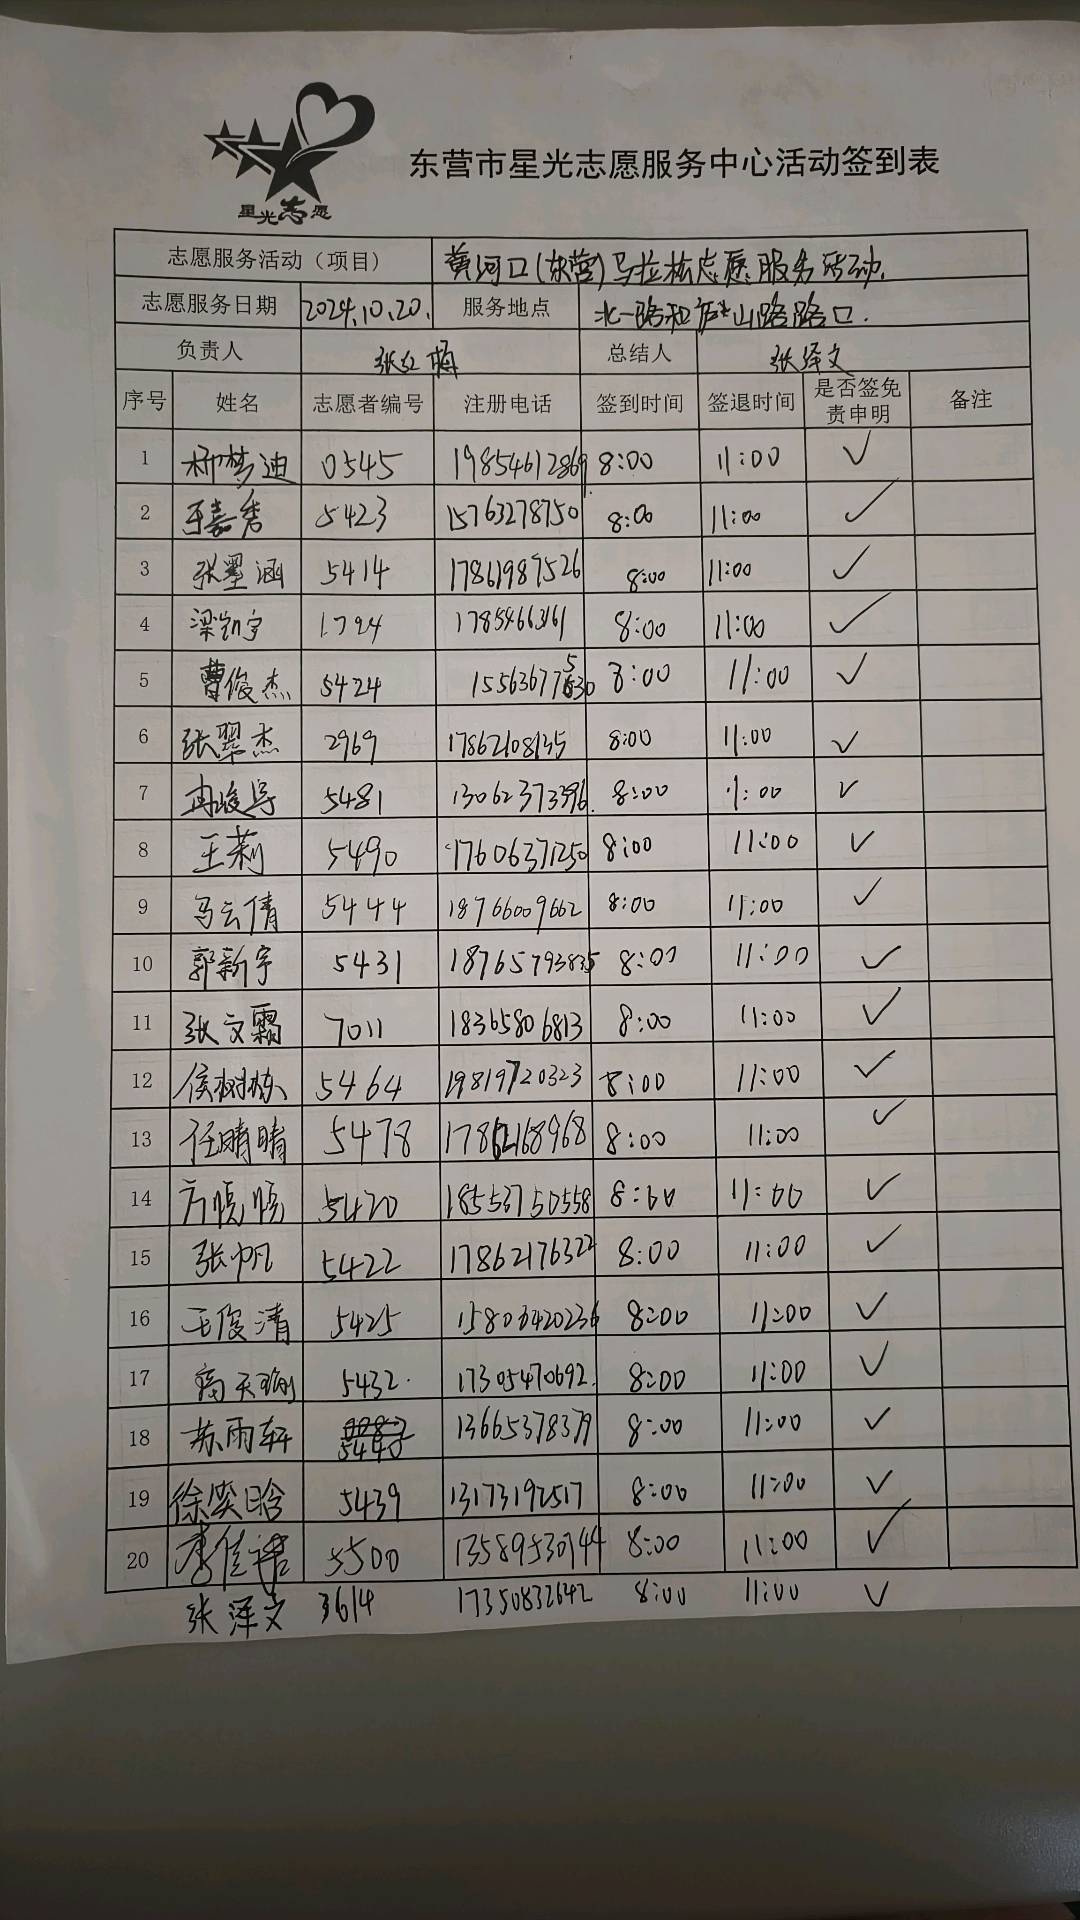 星光志愿
东营市星光志愿服务中心活动签到表
志愿服务活动（项目） 黄河口(东营)马拉松志愿服务活动.
志愿服务日期 2024.10.20. 服务地点 北一路和庐山路路口.
负责人 张红梅 总结人 张泽文
序号 姓名 志愿者编号 注册电话 签到时间 签退时间 是否签免责申明 备注
1 柳梦迪 0545 19854612869 8:00 11:00 ✓
2 王嘉秀 5423 15763278750 8:00 11:00 ✓
3 张墨涵 5414 17861987526 8:00 11:00 ✓
4 梁凯宇 1724 17854663161 8:00 11:00 ✓
5 曹俊杰 5424 8:00 11:00 ✓
6 张翠杰 2969 17862108135 8:00 11:00 ✓
7 5481 13062373396. 8:00 11:00 ✓
8 王莉 5490 17606371250 8:00 11:00 ✓
9 马云倩 5444 18766009662 8:00 11:00 ✓
10 郭新宇 5431 18765793835 8:00 11:00 ✓
11 张文霜 7011 18365806813 8:00 11:00 ✓
12 侯树栋 5464 19819720323 8:00 11:00 ✓
13 任晴晴 5478 17862168968 8:00 11:00 ✓
14 方晓晓 5420 18553750558 8:00 11:00 ✓
15 张帅凡 5422 17862176322 8:00 11:00 ✓
16 王俊清 5425 15806420236 8:00 11:00 ✓
17 高天瑜 5432. 17305470692. 8:00 11:00 ✓
18 苏雨轩 5440 13665378379 8:00 11:00 ✓
19 徐奕晗 5439 13173192517 8:00 11:00 ✓
20 李佳诺 5500 13589530744 8:00 11:00 ✓
张泽文 3614 17350832642 8:00 11:00 ✓